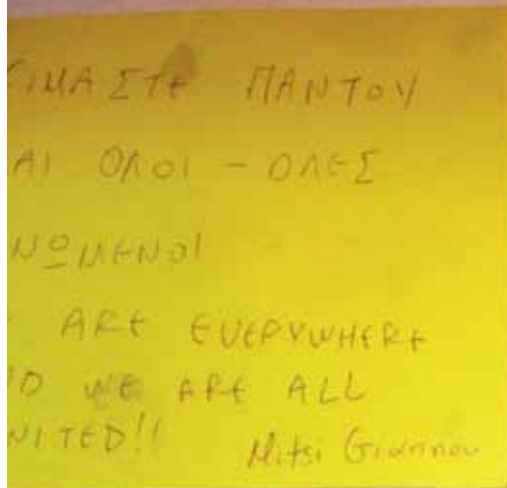 ΕΙΜΑΣΤΕ ΠΑΝΤΟΥ
ΑΙ ΟΛΟΙ - ΟΛΕΣ
ΝΩΜΕΝΟΙ
ARE EVERYWHERE
D WE ARE ALL
NITED!! Mitsi Giannou